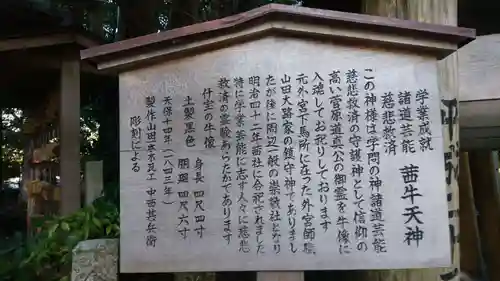 学業成就
諸道芸能
慈悲救済
茜牛天神
この神様は学問の神諸道芸能
慈悲救済の守護神として信仰の
高い菅原道真公の御霊を牛像に
入魂してお祀りしております
元外宮下馬所に在った外宮師職
山田大路家の鎮守神でありまし
たが後に周辺一般の崇敬社となり
明治四十一年当社に合祀されました
特に学業芸能に志す人々に慈悲
救済の霊験あらたかであります
什宝の牛像
土製黒色
身長 四尺四寸
胴廻 四尺六寸
天保十四年(一八四三年)
製作 山田
中西甚兵衛
彫刻による